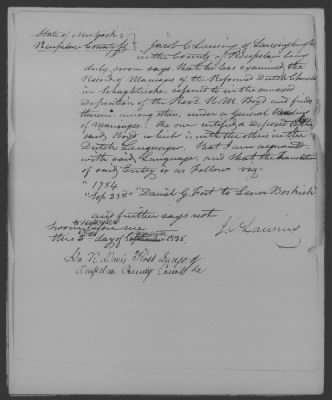 State of New York
Rensselaer County ss Jacob C Lansing of Lansingburgh
in the County of Rensselaer being
duly sworn says that he has examined the
Record of Marriages of the Reformed Dutch Church
in Schaghticoke, referred to in the annexed
deposition of the Revd. N. M. Boyd and finds
therein among others, under a General Heading
of Marriages the one certified & deposed to by
said Boyd which is with the others in the
Dutch Language, that I am acquainted
with said Language, and that the translation
of said Entry is as follows viz
" 1784
" Sep 23rd " Daniel G. Fort to Lena Boskirk
and further says not
Sworn before me
this day of 1838. J C Lansing
Geo R Davis First Judge of
Rensselaer County